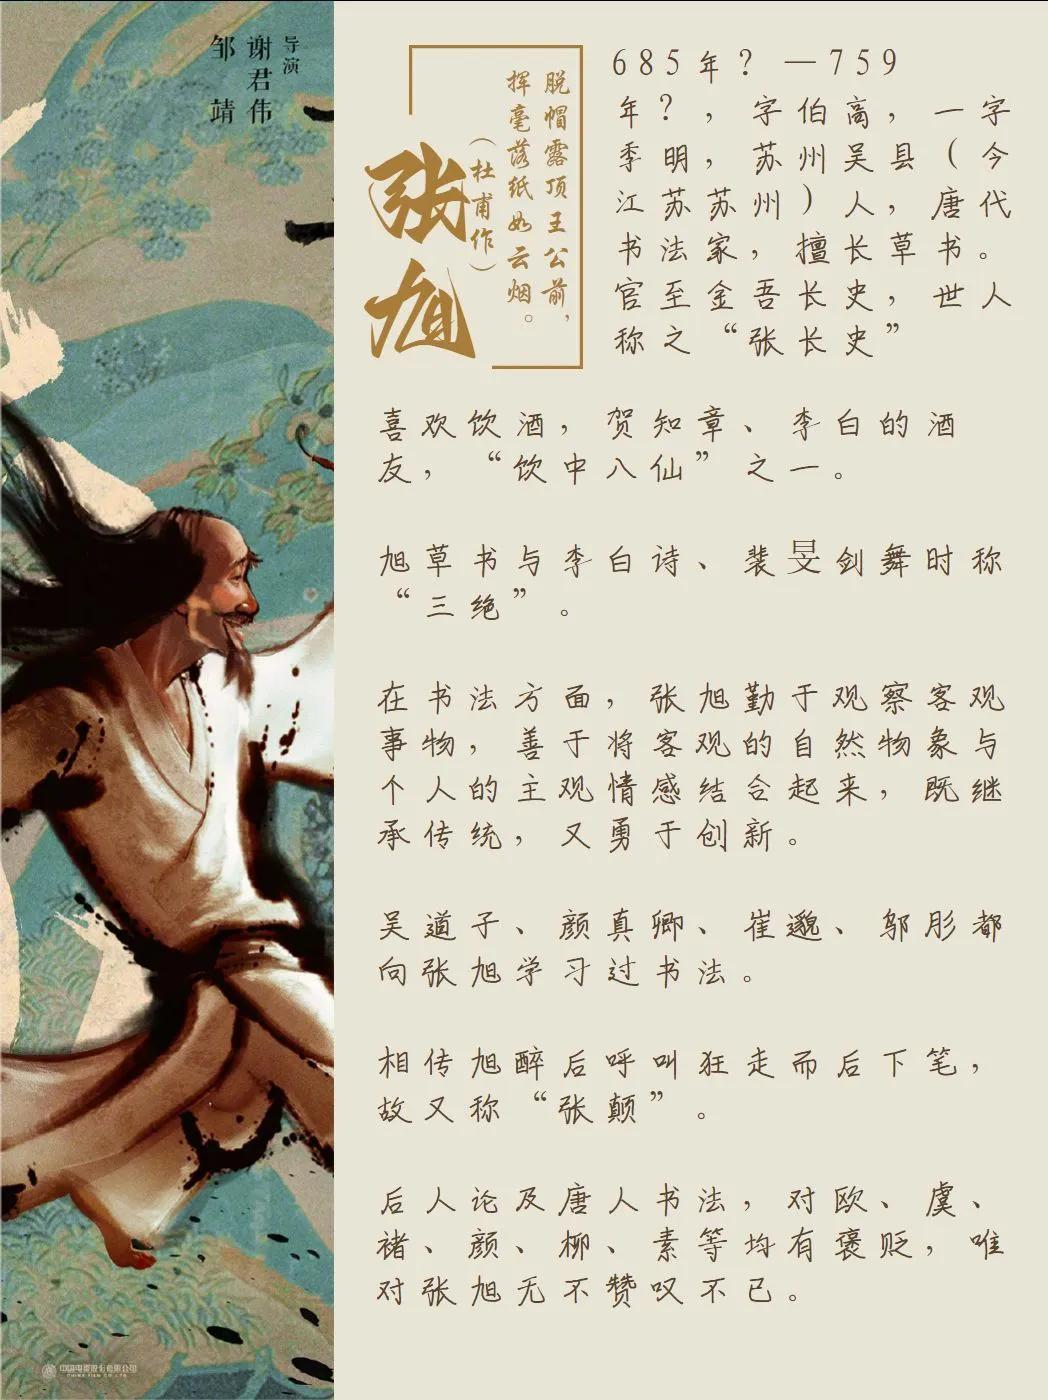 导演
谢君伟
邹靖
张旭
脱帽露顶王公前，
挥毫落纸如云烟。
（杜甫作）
685年？—759
年？，字伯高，一字
季明，苏州吴县（今
江苏苏州）人，唐代
书法家，擅长草书。
官至金吾长史，世人
称之“张长史”
喜欢饮酒，贺知章、李白的酒
友，“饮中八仙”之一。
旭草书与李白诗、裴旻剑舞时称
“三绝”。
在书法方面，张旭勤于观察客观
事物，善于将客观的自然物象与
个人的主观情感结合起来，既继
承传统，又勇于创新。
吴道子、颜真卿、崔邈、邬彤都
向张旭学习过书法。
相传旭醉后呼叫狂走而后下笔，
故又称“张颠”。
后人论及唐人书法，对欧、虞、
褚、颜、柳、素等均有褒贬，唯
对张旭无不赞叹不已。
中国电影股份有限公司
CHINA FILM CO.,LTD